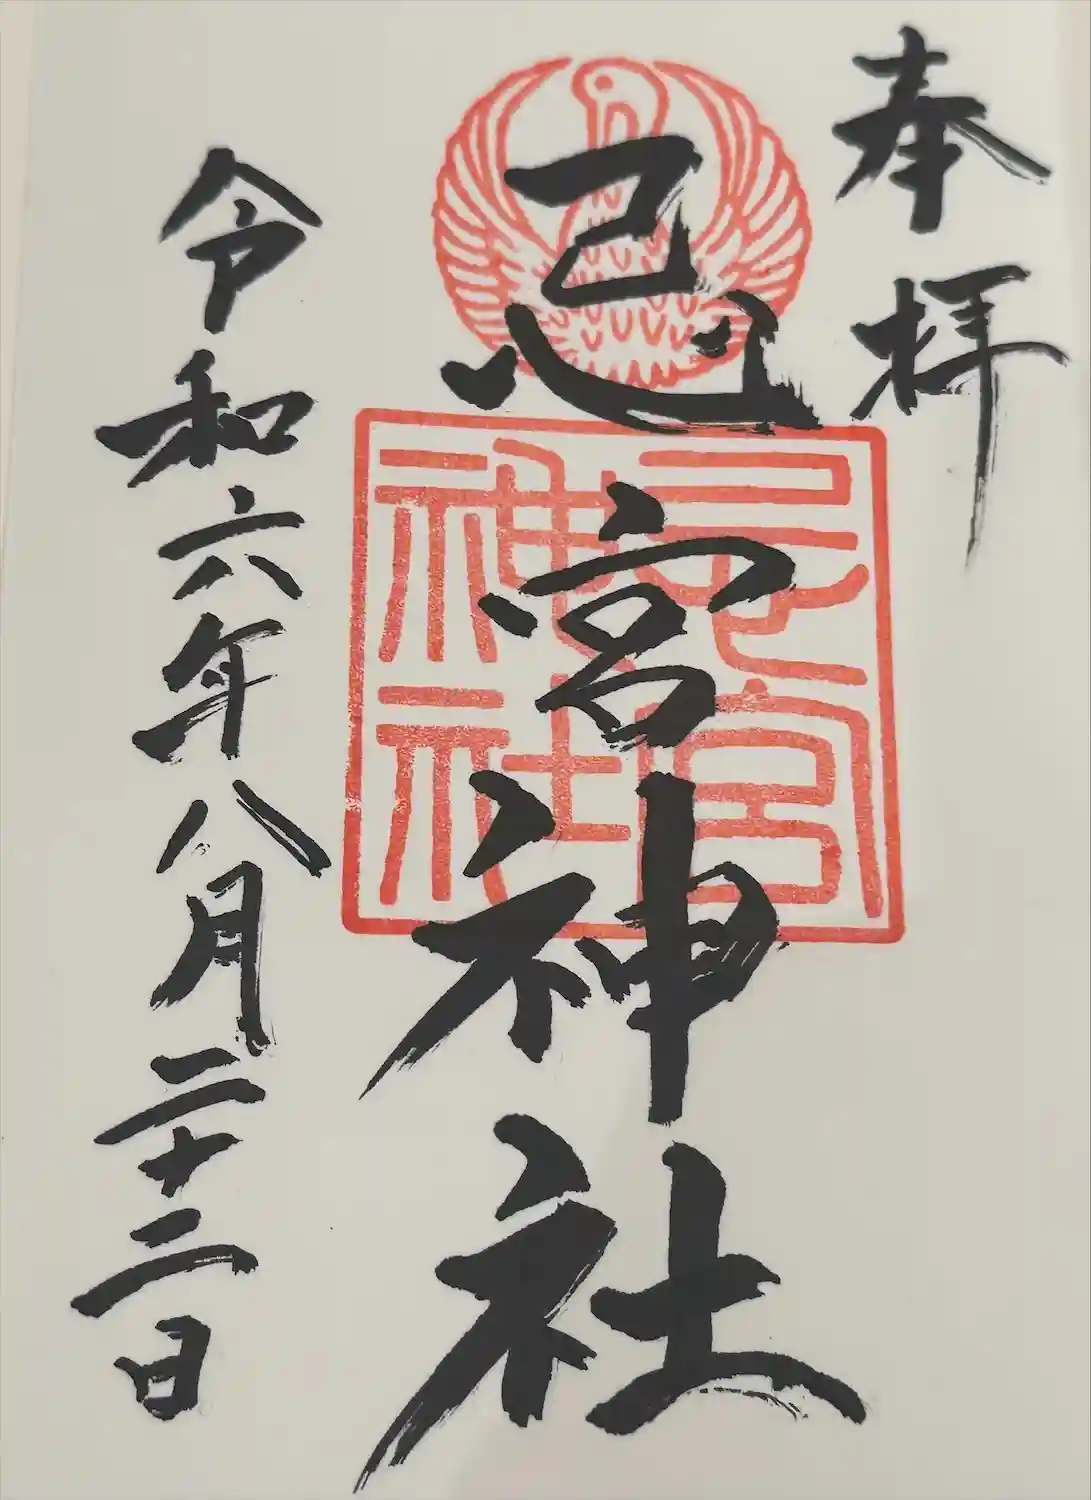 奉拝
忌宮神社
忌宮神社
令和六年八月二十二日